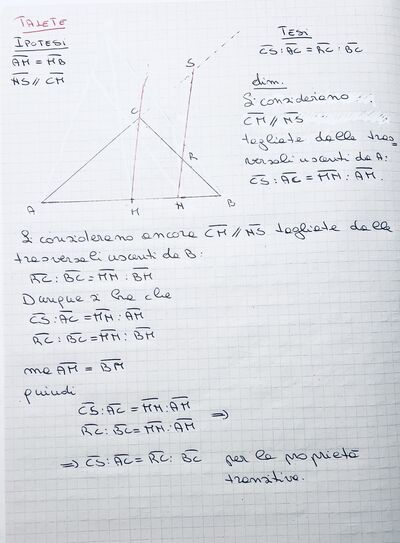 TALETE
IPOTESI
A̅M̅ = M̅B̅
N̅S̅ // C̅M̅
TESI
C̅S̅ : A̅C̅ = R̅C̅ : B̅C̅
dim.
Si considerano
C̅M̅ // N̅S̅
tagliate dalle tras
versali uscenti da A:
C̅S̅ : A̅C̅ = M̅N̅ : A̅M̅.
S
C
R
A
M
N
B
Si considerano ancora C̅M̅ // N̅S̅ tagliate dalle
trasversali uscenti da B:
R̅C̅ : B̅C̅ = M̅N̅ : B̅M̅
Dunque si ha che
C̅S̅ : A̅C̅ = M̅N̅ : A̅M̅
R̅C̅ : B̅C̅ = M̅N̅ : B̅M̅
ma A̅M̅ = B̅M̅
quindi
C̅S̅ : A̅C̅ = M̅N̅ : A̅M̅ ⇒
R̅C̅ : B̅C̅ = M̅N̅ : A̅M̅
⇒ C̅S̅ : A̅C̅ = R̅C̅ : B̅C̅ per la proprietà
transitiva.